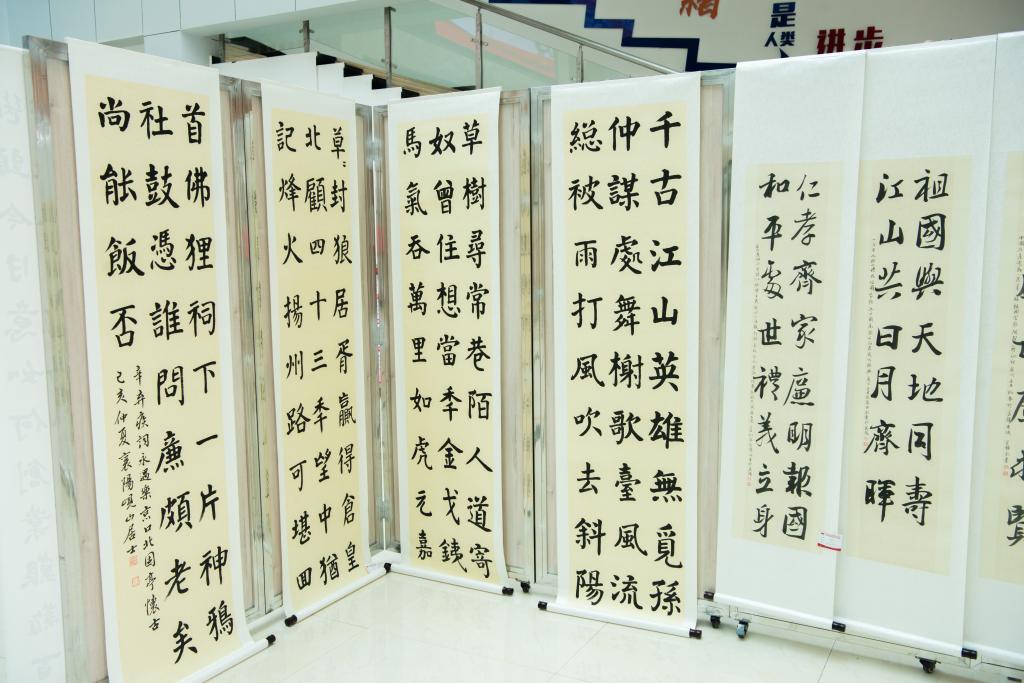 是
人类
进步
祖國與天地同壽
江山共日月齊暉
仁孝齊家廉明報國
和平處世禮義立身
千古江山英雄無覓孫
仲謀處舞榭歌臺風流
総被雨打風吹去斜陽
草樹尋常巷陌人道寄
奴曾住想當秊金戈銕
馬氣吞萬里如虎元嘉
草〻封狼居胥贏得倉皇
北顧四十三秊望中猶
記烽火揚州路可堪囬
首佛狸祠下一片神鴉
社鼓憑誰問廉頗老矣
尚能飯否
辛弃疾词永遇樂京口北固亭懷古
己亥仲夏襄陽峴山居士